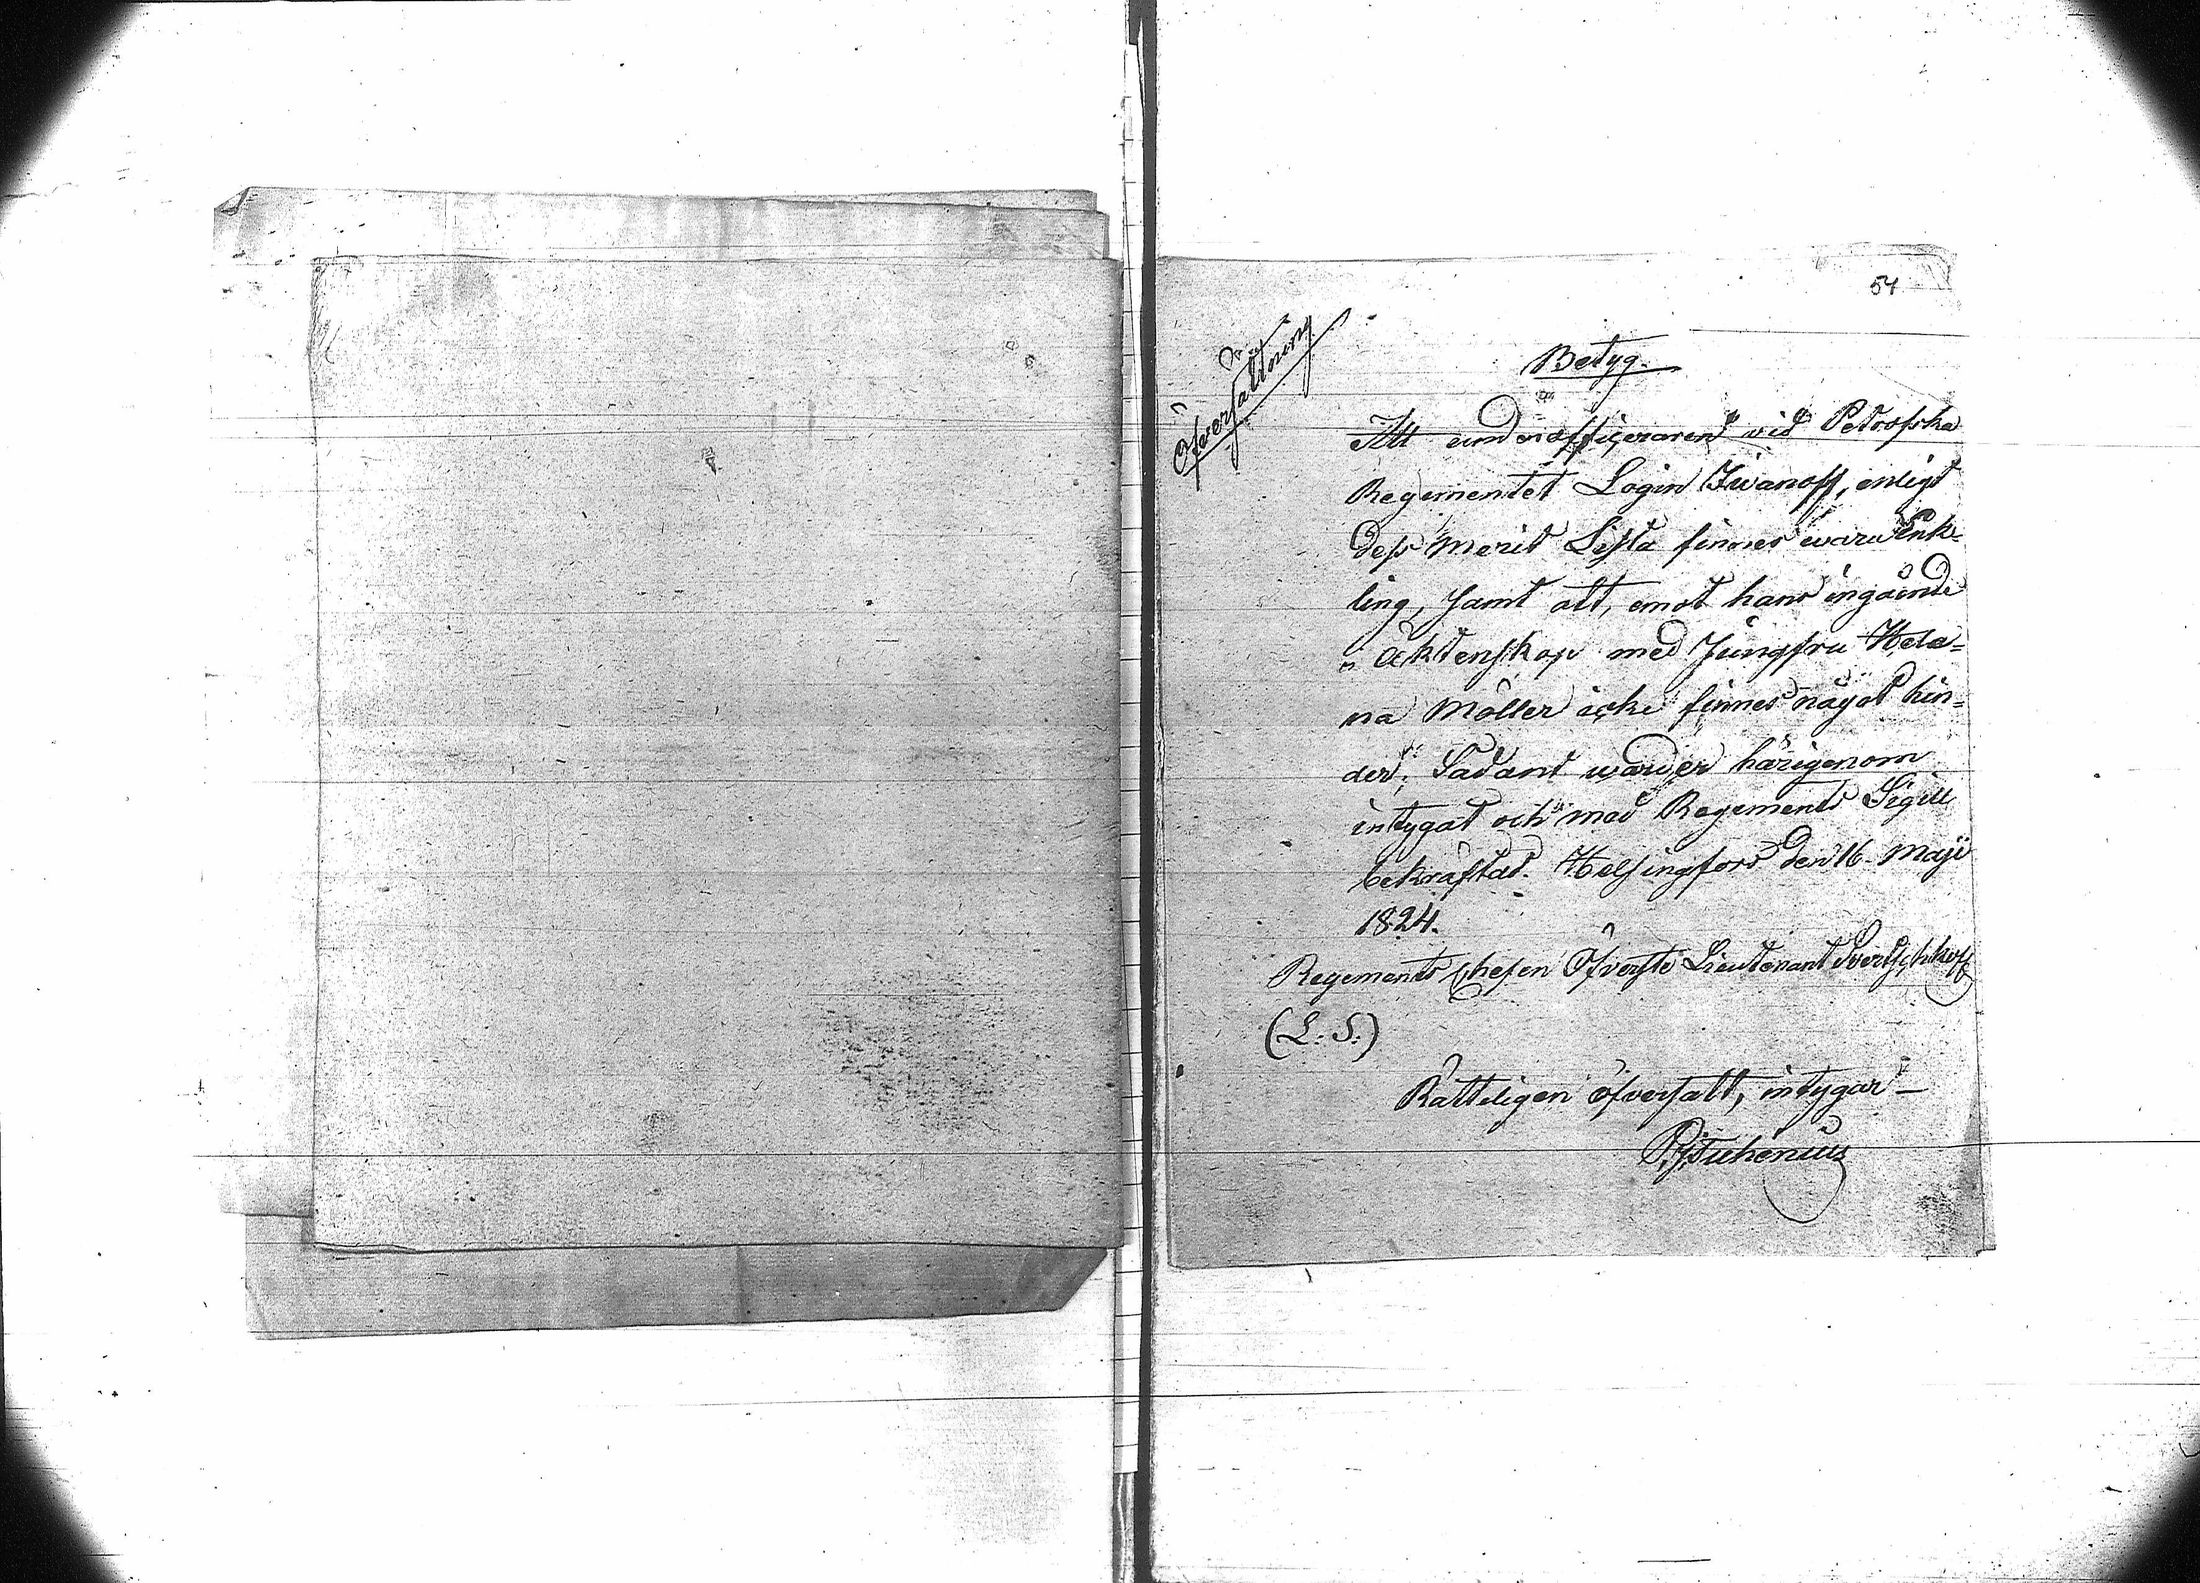 54
Öfversättning
Betyg.
Att underofficeraren vid Petrofska
Regementet Login Iwanoff, enligt
dess Merit Lista finnes wara Enk-
ling, samt att, emot hans ingående
i äktenskap med Jungfru Hele=
na Möller icke finnes något hin=
der; Sådant warder härigenom
intygat och med Regements Sigill
bekräftat. Helsingfors den 16 Maji
1824.
Regements Chefen Öfverste Lieutenant
(L. S.)
Rätteligen öfversatt, intygar